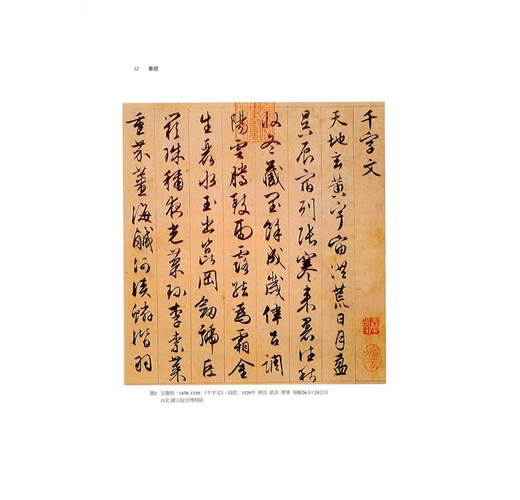 12 雅債
千字文
天地玄黃宇宙洪荒日月盈
昃辰宿列張寒来暑往秋
收冬藏閏餘成歲律召調
陽雲騰致雨露結為霜金
生麗水玉出崑岡劍號巨
闕珠稱夜光菓珍李柰菜
重芥薑海鹹河淡鱗潛羽
圖2 文徵明（1470-1559）《千字文》（局部）1529年 冊頁 紙本 墨筆 每幅26.5×24公分
台北 國立故宮博物院